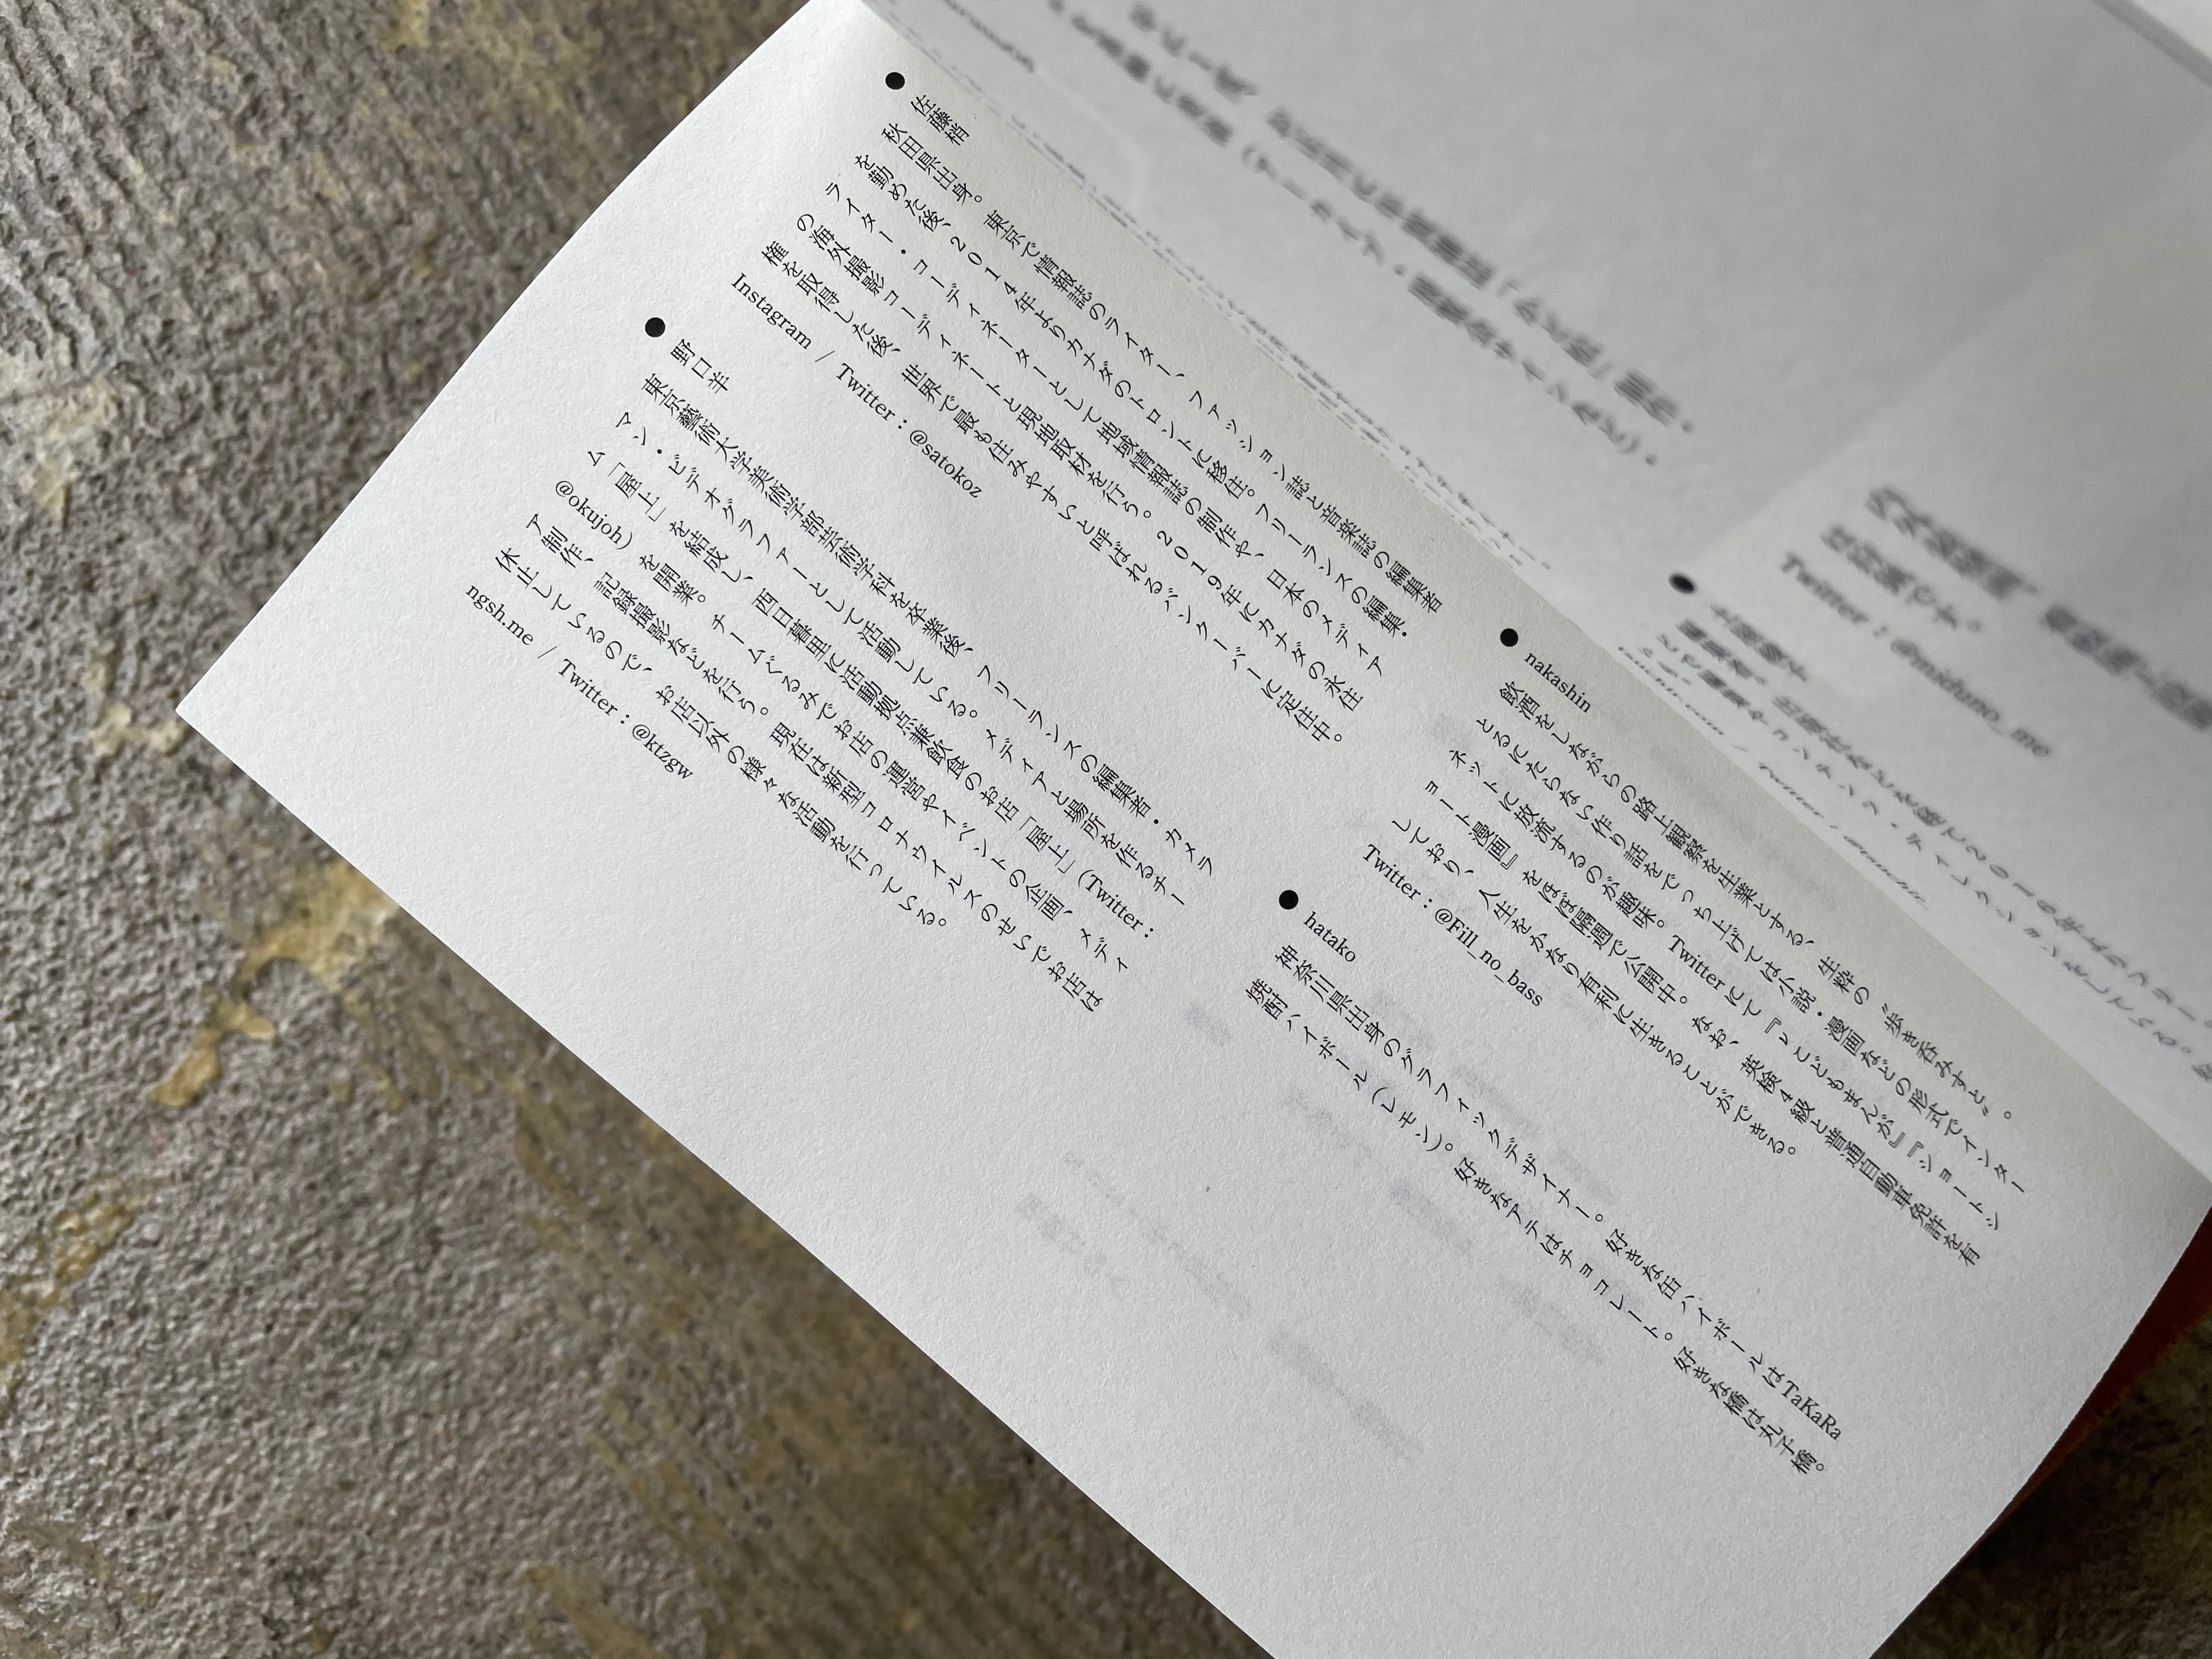 ●佐藤梢
秋田県出身。東京で情報誌のライター、ファッション誌と音楽誌の編集者
を勤めた後、2014年よりカナダのトロントに移住。フリーランスの編集・
ライター・コーディネーターとして地域情報誌の制作や、日本のメディア
の海外撮影コーディネートと現地取材を行う。2019年にカナダの永住
権を取得した後、世界で最も住みやすいと呼ばれるバンクーバーに定住中。
Instagram / Twitter:@satokoz
●野口羊
東京藝術大学美術学部芸術学科を卒業後、フリーランスの編集者・カメラ
マン・ビデオグラファーとして活動している。メディアと場所を作るチー
ム「屋上」を結成し、西日暮里に活動拠点兼飲食のお店「屋上」(Twitter:
@okujoh)を開業。チームぐるみでお店の運営やイベントの企画、メディ
ア制作、記録撮影などを行う。現在は新型コロナウイルスのせいでお店は
休止しているので、お店以外の様々な活動を行っている。
ngsh.me / Twitter:@ktzgw
●nakashin
飲酒をしながらの路上観察を生業とする、生粋の〝歩き呑みすと〟。
とるにたらない作り話をでっち上げては小説・漫画などの形式でインター
ネットに放流するのが趣味。Twitterにて『レこどもまんが』『ショートシ
ョート漫画』をほぼ隔週で公開中。なお、英検4級と普通自動車免許を有
しており、人生をかなり有利に生きることができる。
Twitter:@Fill_no_bass
●hatako
神奈川県出身のグラフィックデザイナー。好きな缶ハイボールはTaKaRa
焼酎ハイボール(レモン)。好きなアテはチョコレート。好きな橋は丸子橋。
Twitter:@miduno_me